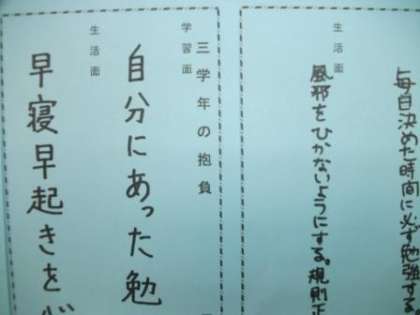 毎日決めた時間に必ず勉強する
生活面
風邪をひかないようにする。規則正
三学年の抱負
学習面
自分にあった勉
生活面
早寝早起きを